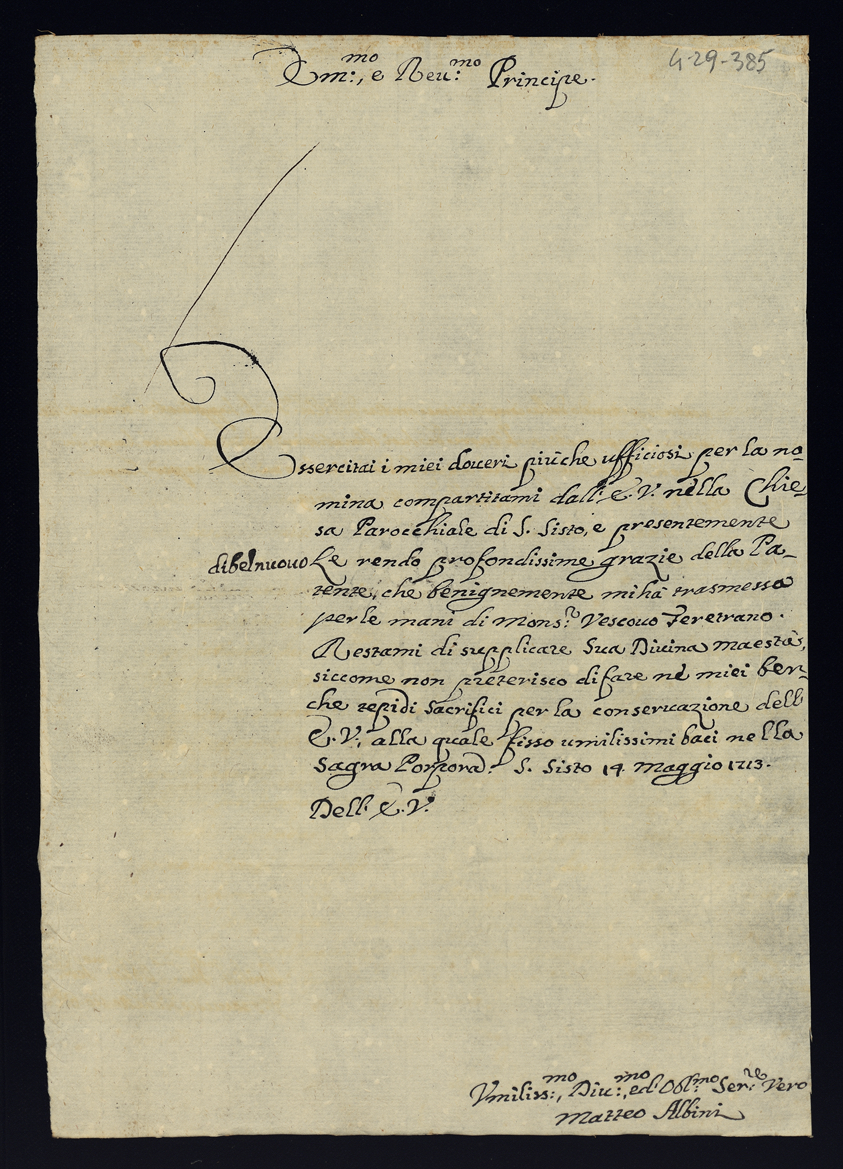 4-29-385
Em:mo, e Reu:mo Principe.
Essercitai i miei doueri più che ufficiosi per la no=
mina compartitami dall' E. V. nella Chie=
sa Parocchiale di S. Sisto, e presentemente
di bel nuouo Le rendo profondissime grazie della Pa=
tente, che benignemente mi hà trasmessa
per le mani di Mons:r Vescouo Feretrano.
Restami di supplicare Sua Diuina maestà,
siccome non preterisco di fare nè miei ben=
che tepidi Sacrifici per la conseruazione dell'
E. V., alla quale fisso umilissimi baci nella
Sagra Porpora. S. Sisto 14. Maggio 1713.
Dell' E. V.
Vmiliss:mo, Diu:mo, ed Obl:mo Ser:re Vero
Matteo Albini